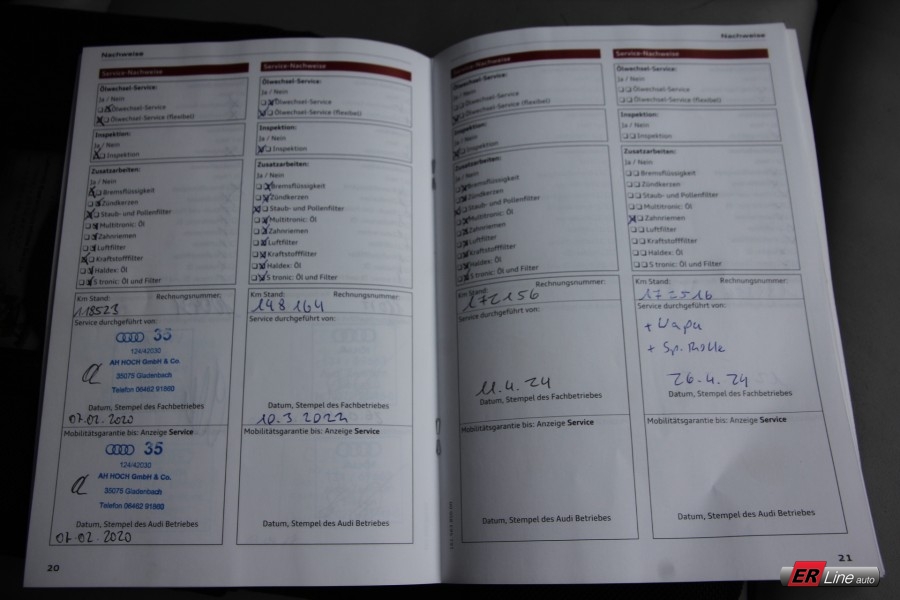 Nachweise
Service-Nachweise
Ölwechsel-Service:
Ja / Nein
Ölwechsel-Service
Ölwechsel-Service (flexibel)
Inspektion:
Ja / Nein
Inspektion
Zusatzarbeiten:
Ja / Nein
Bremsflüssigkeit
Zündkerzen
Staub- und Pollenfilter
Multitronic: Öl
Zahnriemen
Luftfilter
Kraftstofffilter
Haldex: Öl
S tronic: Öl und Filter
Km Stand: Rechnungsnummer:
118523
Service durchgeführt von:
Audi 35
124/42030
AH HOCH GmbH & Co.
35075 Gladenbach
Telefon 06462 91660
Datum, Stempel des Fachbetriebes
07.02.2020
Mobilitätsgarantie bis: Anzeige Service
35
124/42030
AH HOCH GmbH & Co.
35075 Gladenbach
Telefon 06462 91660
Datum, Stempel des Audi Betriebes
07.02.2020
20
Service-Nachweise
Ölwechsel-Service:
Ja / Nein
Ölwechsel-Service
Ölwechsel-Service (flexibel)
Inspektion:
Ja / Nein
Inspektion
Zusatzarbeiten:
Ja / Nein
Bremsflüssigkeit
Zündkerzen
Staub- und Pollenfilter
Multitronic: Öl
Zahnriemen
Luftfilter
Kraftstofffilter
Haldex: Öl
S tronic: Öl und Filter
Km Stand: Rechnungsnummer:
148164
Service durchgeführt von:
Datum, Stempel des Fachbetriebes
10.3.2022
Mobilitätsgarantie bis: Anzeige Service
Datum, Stempel des Audi Betriebes
Nachweise
Service-Nachweise
Ölwechsel-Service:
Ja / Nein
Ölwechsel-Service
Ölwechsel-Service (flexibel)
Inspektion:
Ja / Nein
Inspektion
Zusatzarbeiten:
Ja / Nein
Bremsflüssigkeit
Zündkerzen
Staub- und Pollenfilter
Multitronic: Öl
Zahnriemen
Luftfilter
Kraftstofffilter
Haldex: Öl
S tronic: Öl und Filter
Km Stand: Rechnungsnummer:
172156
Service durchgeführt von:
11.4.24
Datum, Stempel des Fachbetriebes
Mobilitätsgarantie bis: Anzeige Service
Datum, Stempel des Audi Betriebes
Service-Nachweise
Ölwechsel-Service:
Ja / Nein
Ölwechsel-Service
Ölwechsel-Service (flexibel)
Inspektion:
Ja / Nein
Inspektion
Zusatzarbeiten:
Ja / Nein
Bremsflüssigkeit
Zündkerzen
Staub- und Pollenfilter
Multitronic: Öl
Zahnriemen
Luftfilter
Kraftstofffilter
Haldex: Öl
S tronic: Öl und Filter
Km Stand: Rechnungsnummer:
172516
Service durchgeführt von:
+ Wapu
+ Sp. Rolle
26.4.24
Datum, Stempel des Fachbetriebes
Mobilitätsgarantie bis: Anzeige Service
Datum, Stempel des Audi Betriebes
21
ER Line auto